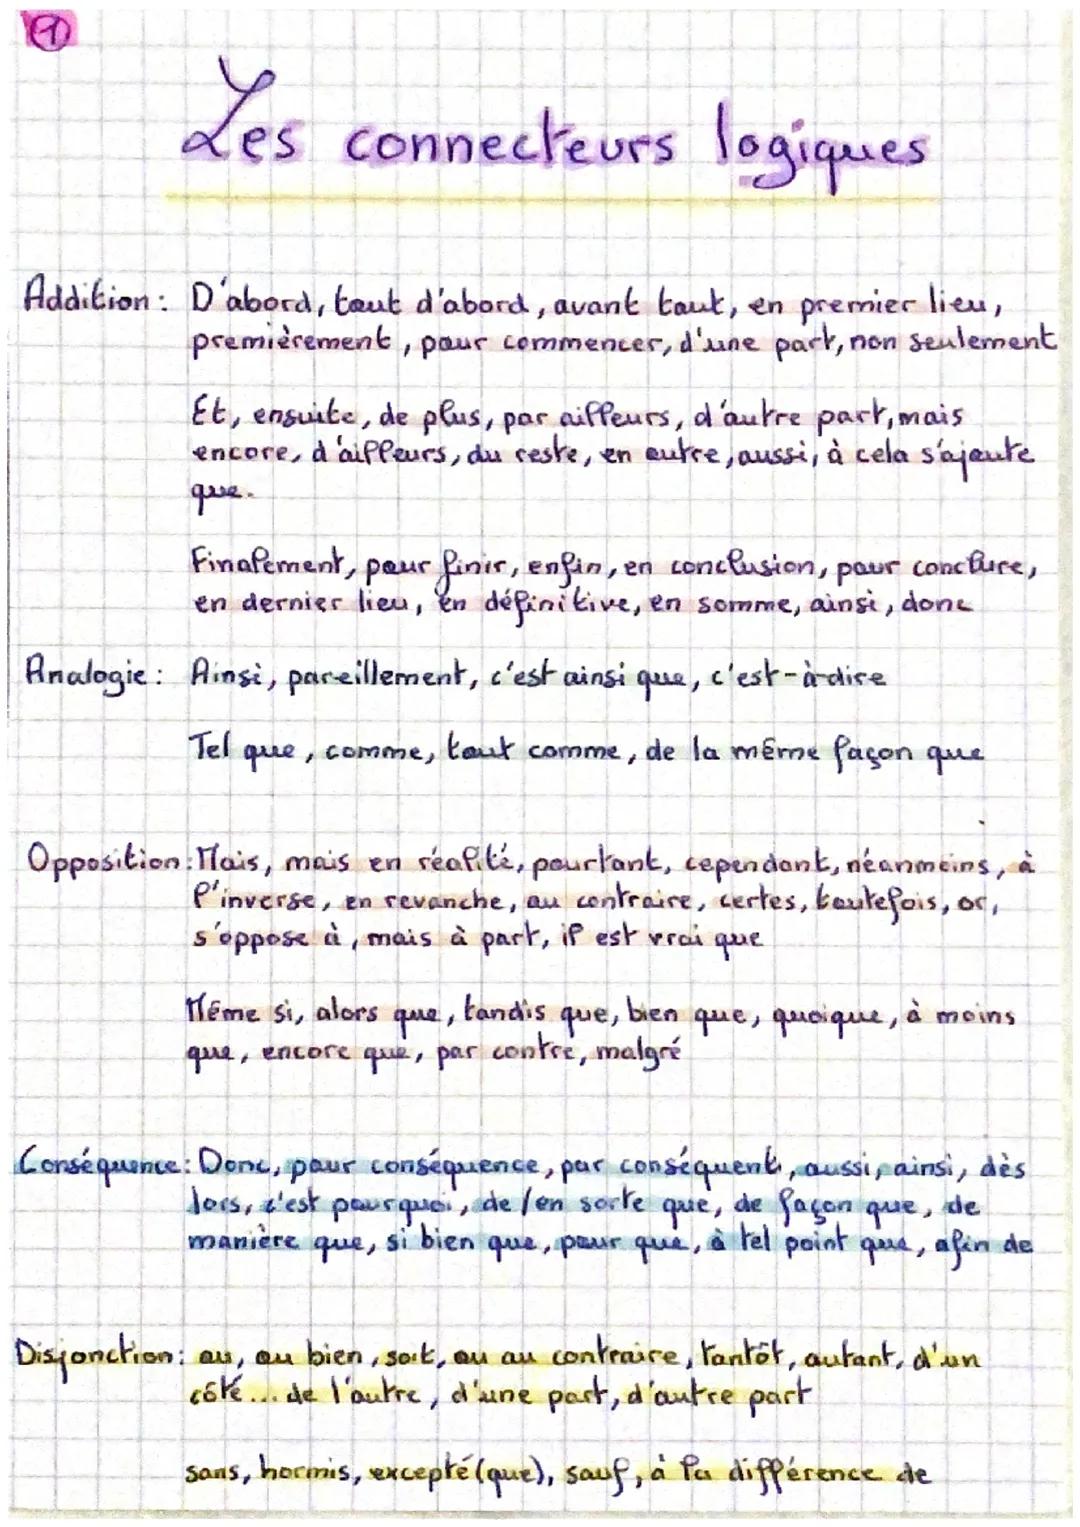 1
Les connecteurs logiques
Addition : D'abord, tout d'abord, avant tout, en premier lieu,
premièrement, pour commencer, d'une part, non seulement
Et, ensuite, de plus, par ailleurs, d'autre part, mais
encore, d'ailleurs, du reste, en outre, aussi, à cela s'ajoute
que.
Finalement, pour finir, enfin, en conclusion, pour conclure,
en dernier lieu, en définitive, en somme, ainsi, donc
Analogie : Ainsi, pareillement, c'est ainsi que, c'est-à-dire
Tel que, comme, tout comme, de la même façon que
Opposition : Mais, mais en réalité, pourtant, cependant, néanmoins, à
l'inverse, en revanche, au contraire, certes, toutefois, or,
s'oppose à, mais à part, il est vrai que
Même si, alors que, tandis que, bien que, quoique, à moins
que, encore que, par contre, malgré
Conséquence : Donc, pour conséquence, par conséquent, aussi, ainsi, dès
lors, c'est pourquoi, de/en sorte que, de façon que, de
manière que, si bien que, pour que, à tel point que, afin de
Disjonction : ou, ou bien, soit, ou au contraire, tantôt, autant, d'un
côté... de l'autre, d'une part, d'autre part
sans, hormis, excepté (que), sauf, à la différence de